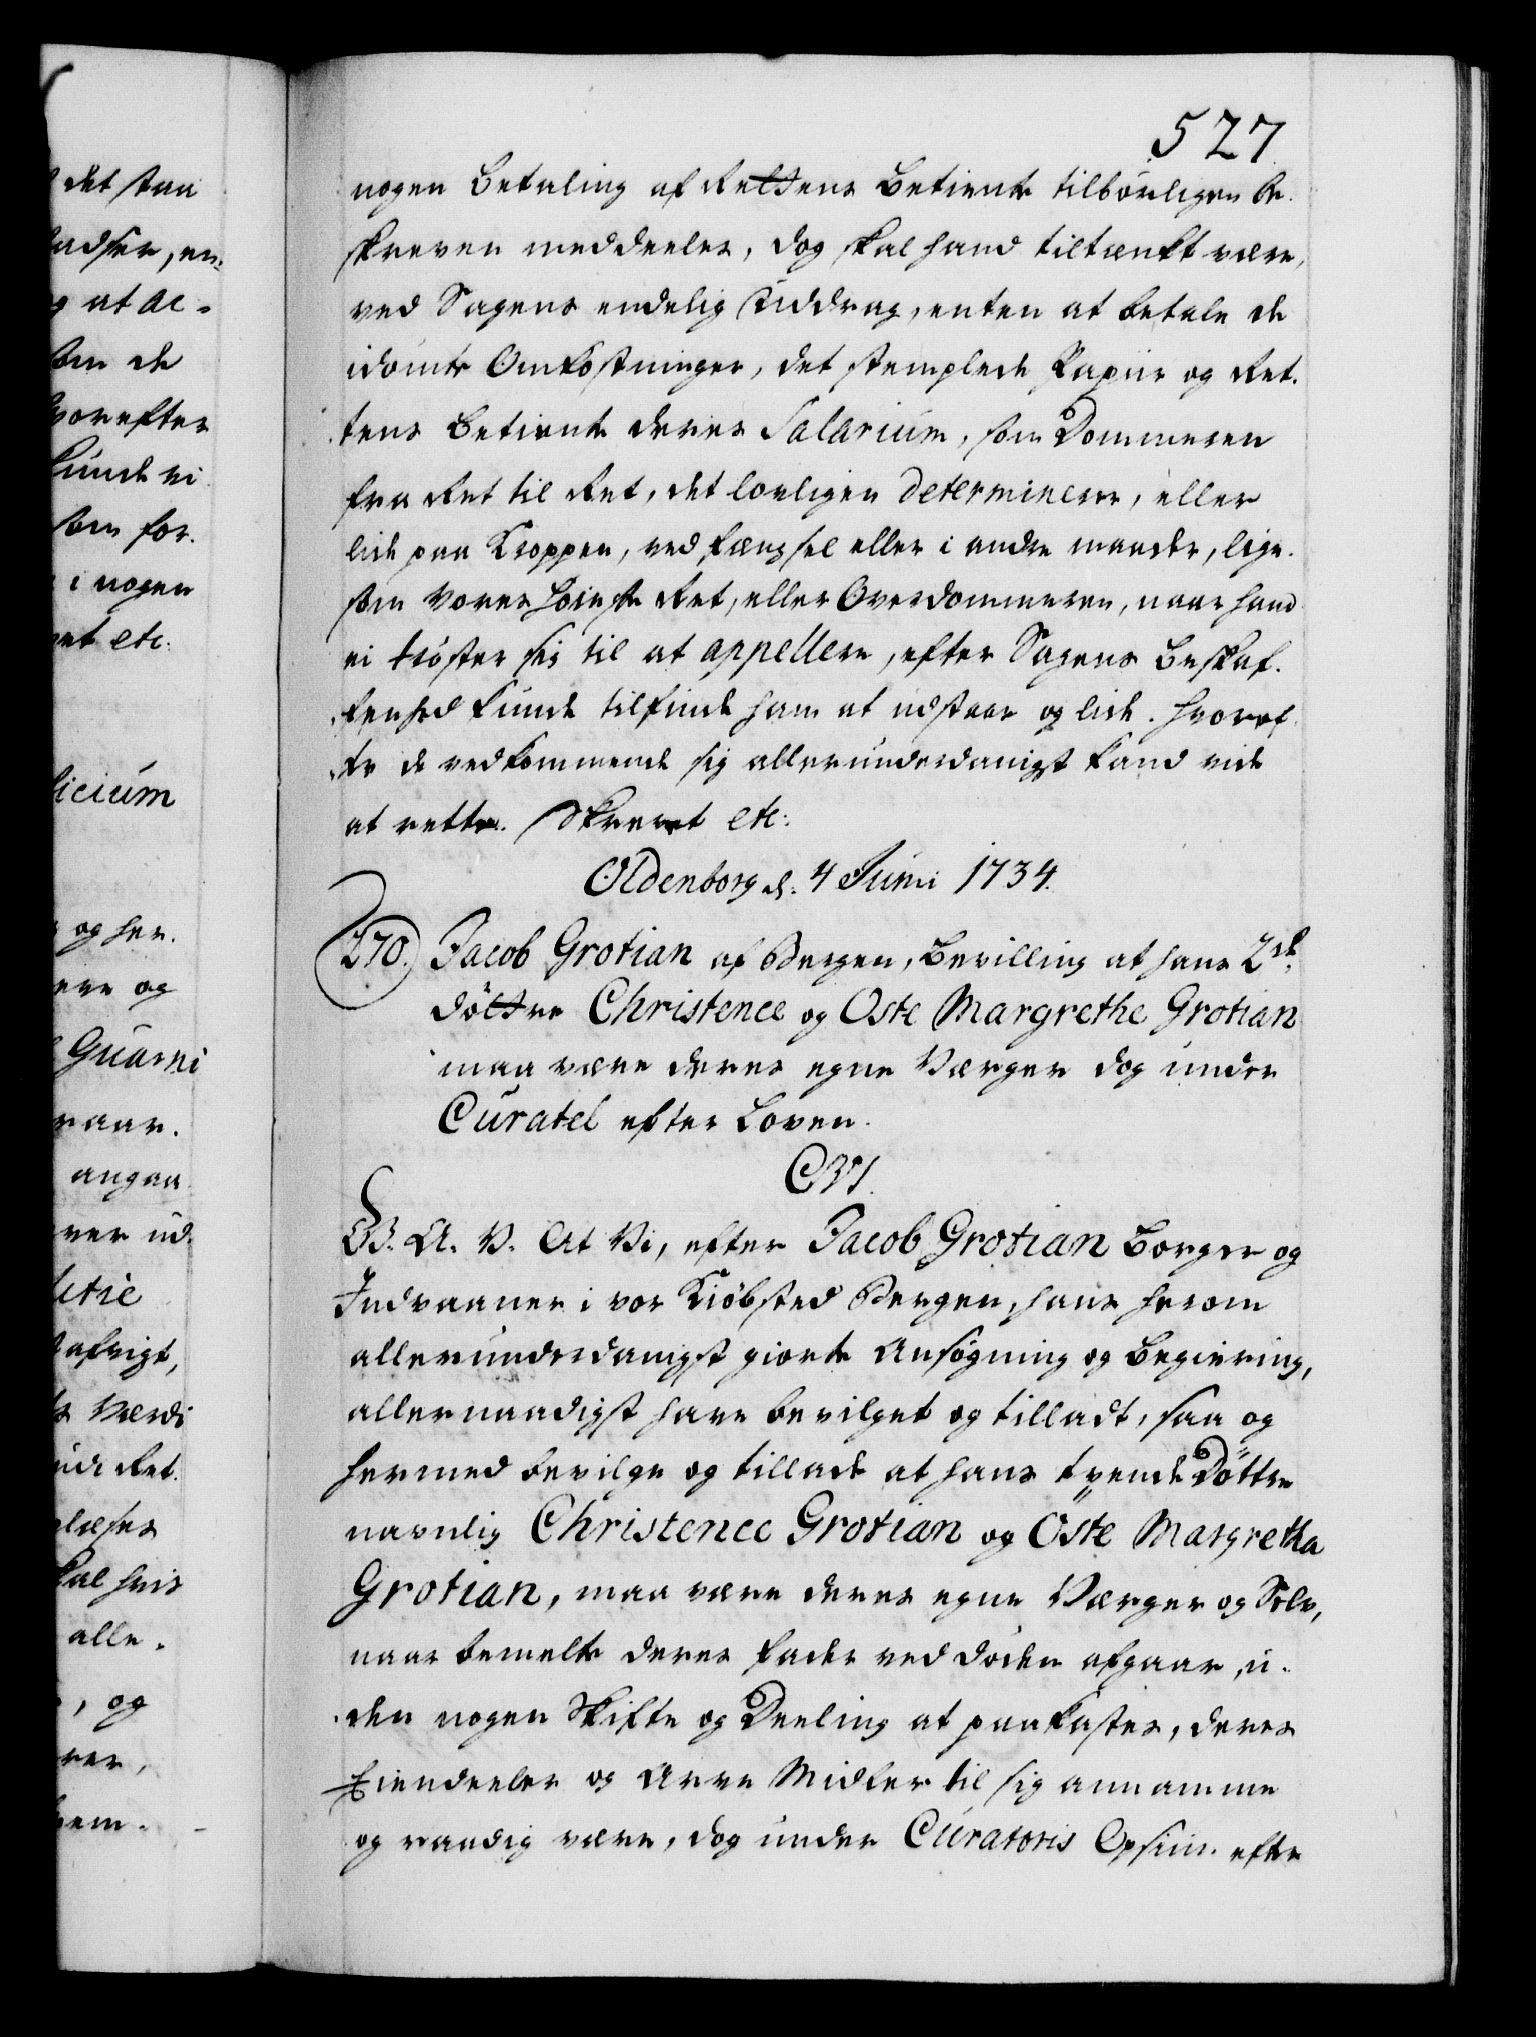 527
nogen Betaling af Rettens Betiente tilbørligen be-
skreven meddeeles, dog skal hand tiltænkt være,
ved Sagens endelig Uddrag, enten at betale de
idømte Omkostninger, det stemplede Papiir og Ret-
tens Betiente deres Salarium, som Dommeren
fra Ret til Ret, det lovligen determinerer, eller
lide paa Kroppen, ved fængsel eller i andre maader, lige-
som Vores Høieste Ret, eller Overdommeren, naar hand
ei trøster sig til at appellere, efter Sagens Beskaf-
fenhed kunde tilfinde ham at udstaae og lide. Hvoref-
ter de vedkommende sig allerunderdanigst kand vide
at rette. Skrevet etc:
Oldenborg d. 4 Junii 1734.
270. Jacob Grotian af Bergen, Bevilling at hans 2de
døttre Christence og Oste Margrethe Grotian
maa være deres egne Værger dog under
Curatel efter Loven.
C VI.
G. A. V. At Vi, efter Jacob Grotian Borger og
Indvaaner i vor Kiøbsted Bergen, hans herom
allerunderdanigst giorte Ansøgning og Begiering,
allernaadigst have bevilget og tilladt, saa og
hermed bevilge og tillade at hans tvende Döttre
navnlig Christence Grotian og Öste Margretha
Grotian, maa være deres egne Værger og Selv,
naar bemelte deres fader ved døden afgaar, u-
den nogen Skifte og Deeling at paakastes, deres
Eiendeeler og Arve Midler til sig annamme
og raadig være, dog under Curatoris Opsiun efter
det staa
og at ac-
som de
hvorefter
kunde vi
som for-
i nogen
etc:
ficium
og her-
eve og
Guarni
angaa
ud-
alle-
, og